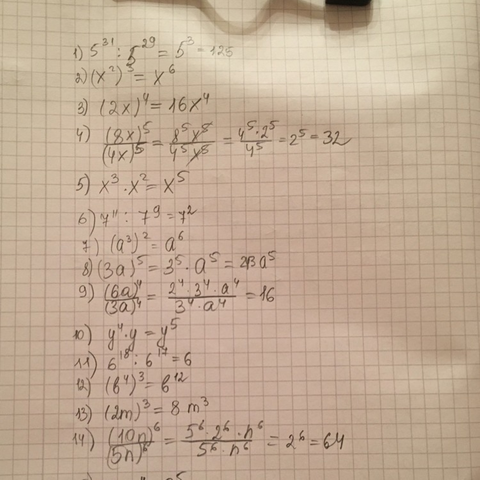 1) 5³¹ : 5²⁹ = 5³ = 125
2) (x²)³ = x⁶
3) (2x)⁴ = 16x⁴
4) (8x)⁵/(4x)⁵ = 8⁵x⁵/4⁵x⁵ = 4⁵·2⁵/4⁵ = 2⁵ = 32
5) x³·x² = x⁵
6) 7¹¹ : 7⁹ = 7²
7) (a³)² = a⁶
8) (3a)⁵ = 3⁵·a⁵ = 243a⁵
9) (6a)⁴/(3a)⁴ = 2⁴·3⁴·a⁴/3⁴·a⁴ = 16
10) y⁴·y = y⁵
11) 6¹⁸ : 6¹⁷ = 6
12) (b⁴)³ = b¹²
13) (2m)³ = 8m³
14) (10n)⁶/(5n)⁶ = 5⁶·2⁶·n⁶/5⁶·n⁶ = 2⁶ = 64